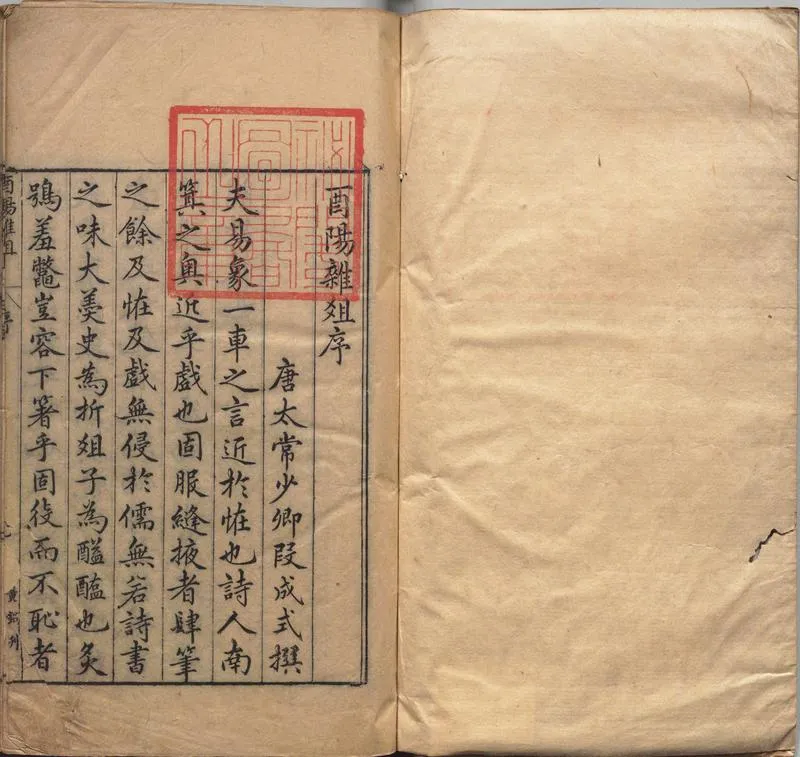 酉陽雜俎序
唐太常少卿段成式撰
夫易象一車之言近於恠也詩人南
箕之奥近乎戲也固服縫掖者肆筆
之餘及恠及戲無侵於儒無若詩書
之味大羹史為折俎子為醯醢也炙
鴞羞鼈豈容下箸乎固役而不恥者
酉陽雜俎
序